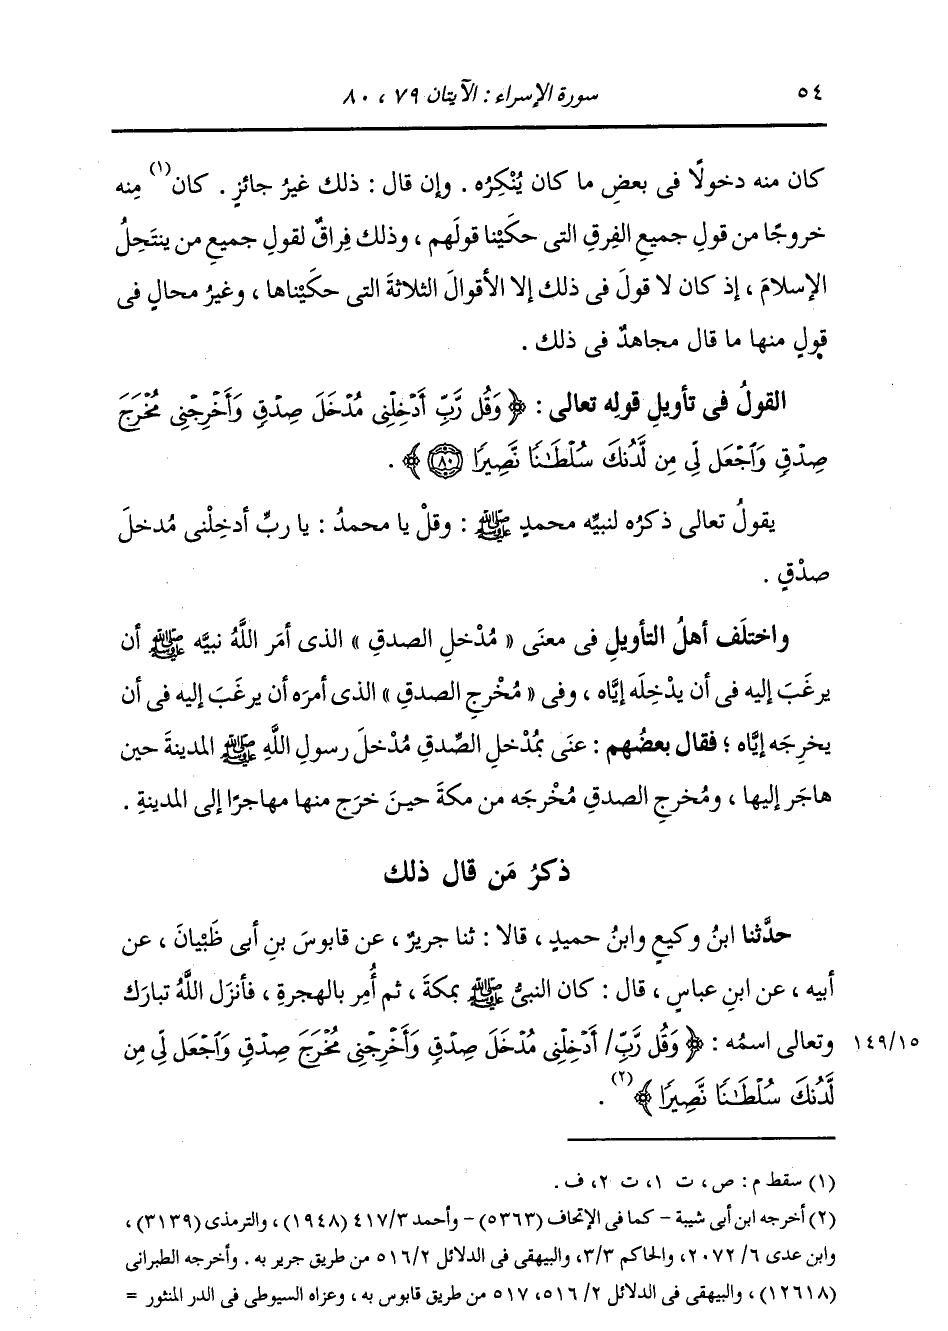 ٥٤ سورة الإسراء : الآيتان ٧٩ ، ٨٠
كان منه دخولًا فى بعضِ ما كان يُنْكِرُه . وإن قال : ذلك غيرُ جائزٍ . كان(١) مِنه
خروجًا من قولِ جميعِ الفِرقِ التى حكَيْنا قولَهم ، وذلك فِراقٌ لقولِ جميعِ من ينتَحِلُ
الإسلامَ ، إذ كان لا قولَ فى ذلك إلا الأقوالَ الثلاثةَ التى حكَيْناها ، وغيرُ محالٍ فى
قولٍ منها ما قال مجاهدٌ فى ذلك .
القولُ فى تأويلِ قولِه تعالى : ﴿ وَقُل رَّبِّ أَدْخِلْنِى مُدْخَلَ صِدْقٍ وَأَخْرِجْنِى مُخْرَجَ
صِدْقٍ وَٱجْعَل لِّى مِن لَّدُنكَ سُلْطَـٰنًا نَّصِيرًا ٨٠ ﴾ .
يقولُ تعالى ذكرُه لنبيِّه محمدٍ ﷺ : وقلْ يا محمدُ : يا ربِّ أدخِلْنى مُدخلَ
صدْقٍ .
واختلَف أهلُ التأويلِ فى معنَى « مُدْخلِ الصدقِ » الذى أمَر اللَّهُ نبيَّه ﷺ أن
يرغَبَ إليه فى أن يدْخِلَه إيَّاه ، وفى « مُخْرجِ الصدقِ » الذى أمرَه أن يرغَبَ إليه فى أن
يخرِجَه إيَّاه ؛ فقال بعضُهم : عنَى بمُدْخلِ الصِّدقِ مُدْخلَ رسولِ اللَّهِ ﷺ المدينةَ حين
هاجَر إليها ، ومُخرجِ الصدقِ مُخْرجَه من مكةَ حينَ خرَج منها مهاجرًا إلى المدينةِ .
ذكرُ مَن قال ذلك
حدَّثنا ابنُ وكيعٍ وابنُ حميدٍ ، قالا : ثنا جريرٌ ، عن قابوسَ بنِ أبى ظَبْيانَ ، عن
أبيه ، عن ابنِ عباسٍ ، قال : كان النبىُّ ﷺ بمكةَ ، ثم أُمِر بالهجرةِ ، فأنزَل اللَّهُ تبارَك
١٤٩/١٥ وتعالى اسمُه : ﴿ وَقُل رَّبِّ/ أَدْخِلْنِى مُدْخَلَ صِدْقٍ وَأَخْرِجْنِى مُخْرَجَ صِدْقٍ وَٱجْعَل لِّى مِن
لَّدُنكَ سُلْطَـٰنًا نَّصِيرًا ﴾(٢) .
(١) سقط م : ص ، ت ١، ت ٢، ف .
(٢) أخرجه ابن أبى شيبة - كما فى الإتحاف (٥٣٦٣) - وأحمد ٤١٧/٣ (١٩٤٨) ، والترمذى (٣١٣٩) ،
وابن عدى ٦/ ٢٠٧٢، والحاكم ٣/٣، والبيهقى فى الدلائل ٥١٦/٢ من طريق جرير به . وأخرجه الطبرانى
(١٢٦١٨) ، والبيهقى فى الدلائل ٢/ ٥١٦، ٥١٧ من طريق قابوس به ، وعزاه السيوطى فى الدر المنثور =